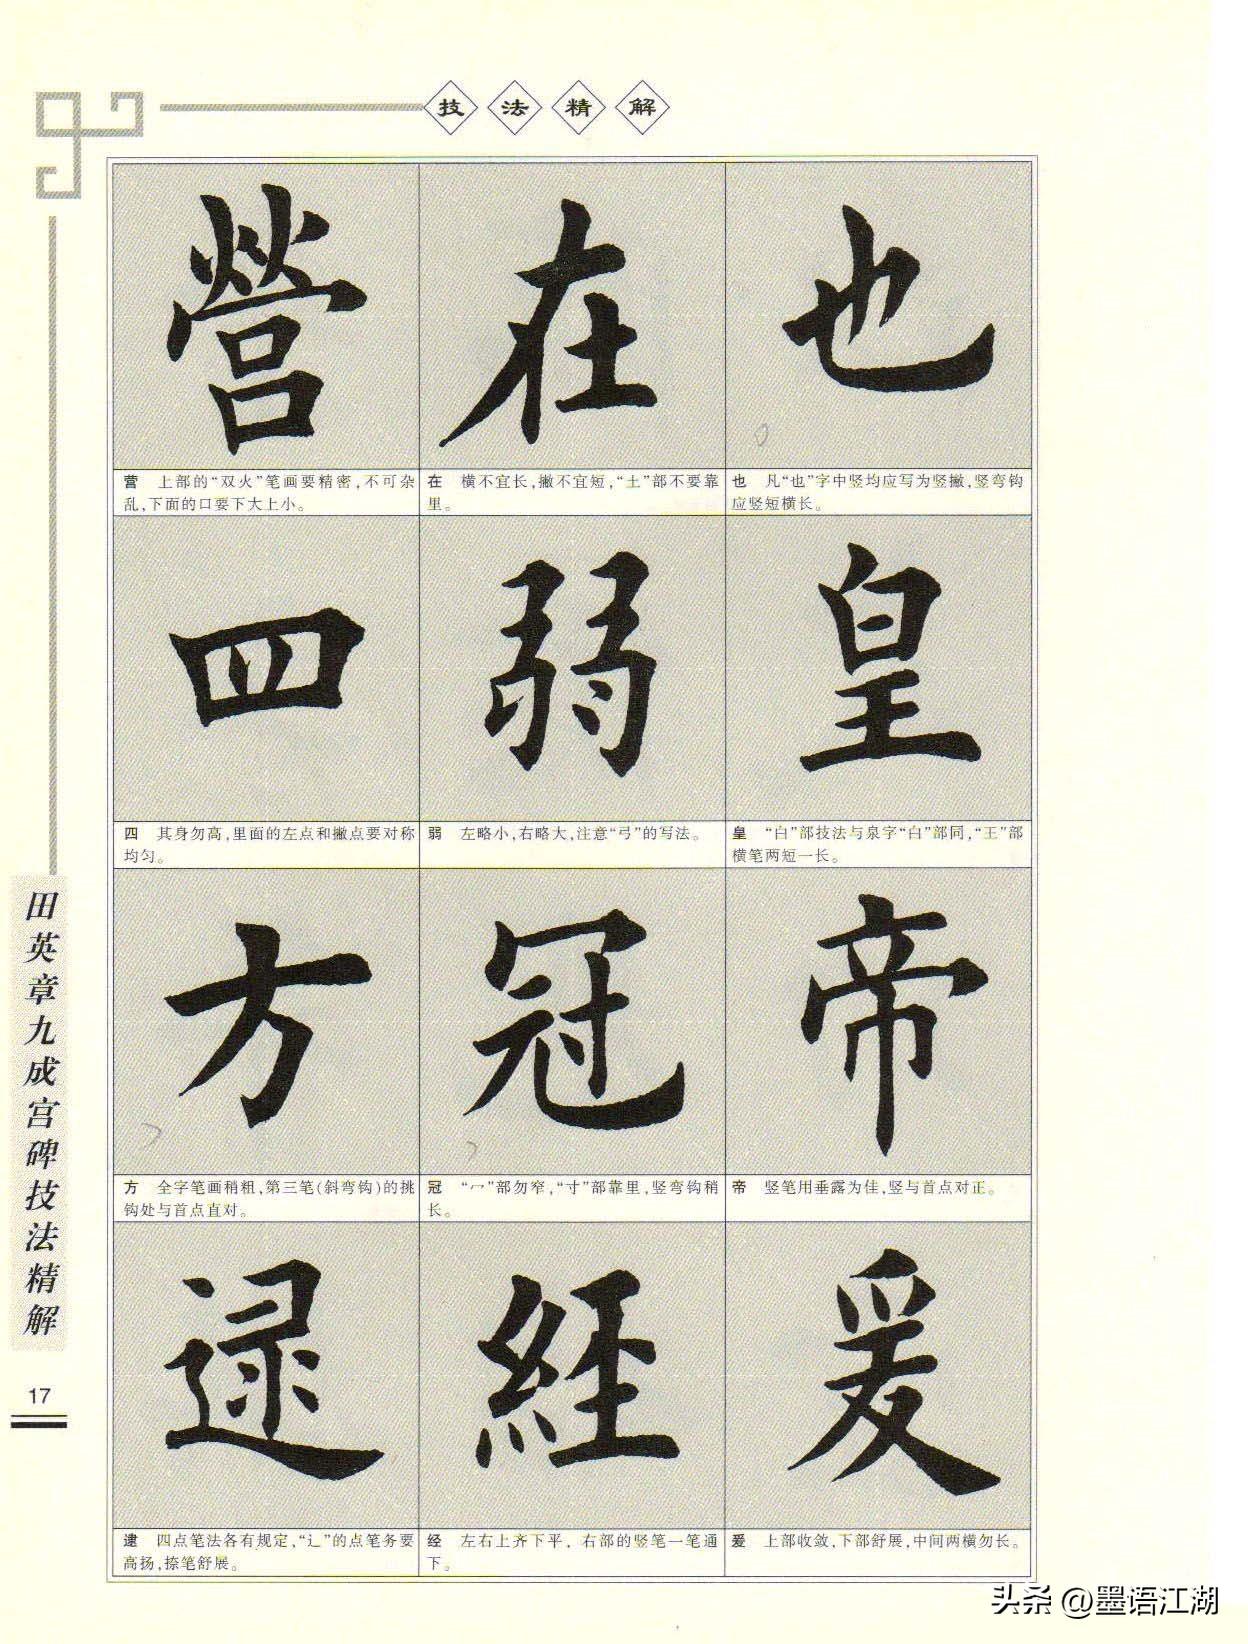 技法精解
營
在
也
营 上部的“双火”笔画要精密,不可杂
乱,下面的口要下大上小。
在 横不宜长,撇不宜短,“土”部不要靠
里。
也 凡“也”字中竖均应写为竖撇,竖弯钩
应竖短横长。
四
弱
皇
四 其身勿高,里面的左点和撇点要对称
均匀。
弱 左略小,右略大,注意“弓”的写法。
皇 “白”部技法与泉字“白”部同,“王”部
横笔两短一长。
方
冠
帝
方 全字笔画稍粗,第三笔(斜弯钩)的挑
钩处与首点直对。
冠 “冖”部勿窄,“寸”部靠里,竖弯钩稍
长。
帝 竖笔用垂露为佳,竖与首点对正。
逯
經
爰
逮 四点笔法各有规定,“辶”的点笔务要
高扬,捺笔舒展。
经 左右上齐下平,右部的竖笔一笔通
下。
爰 上部收敛,下部舒展,中间两横勿长。
田英章九成宫碑技法精解
17
头条 @墨语江湖